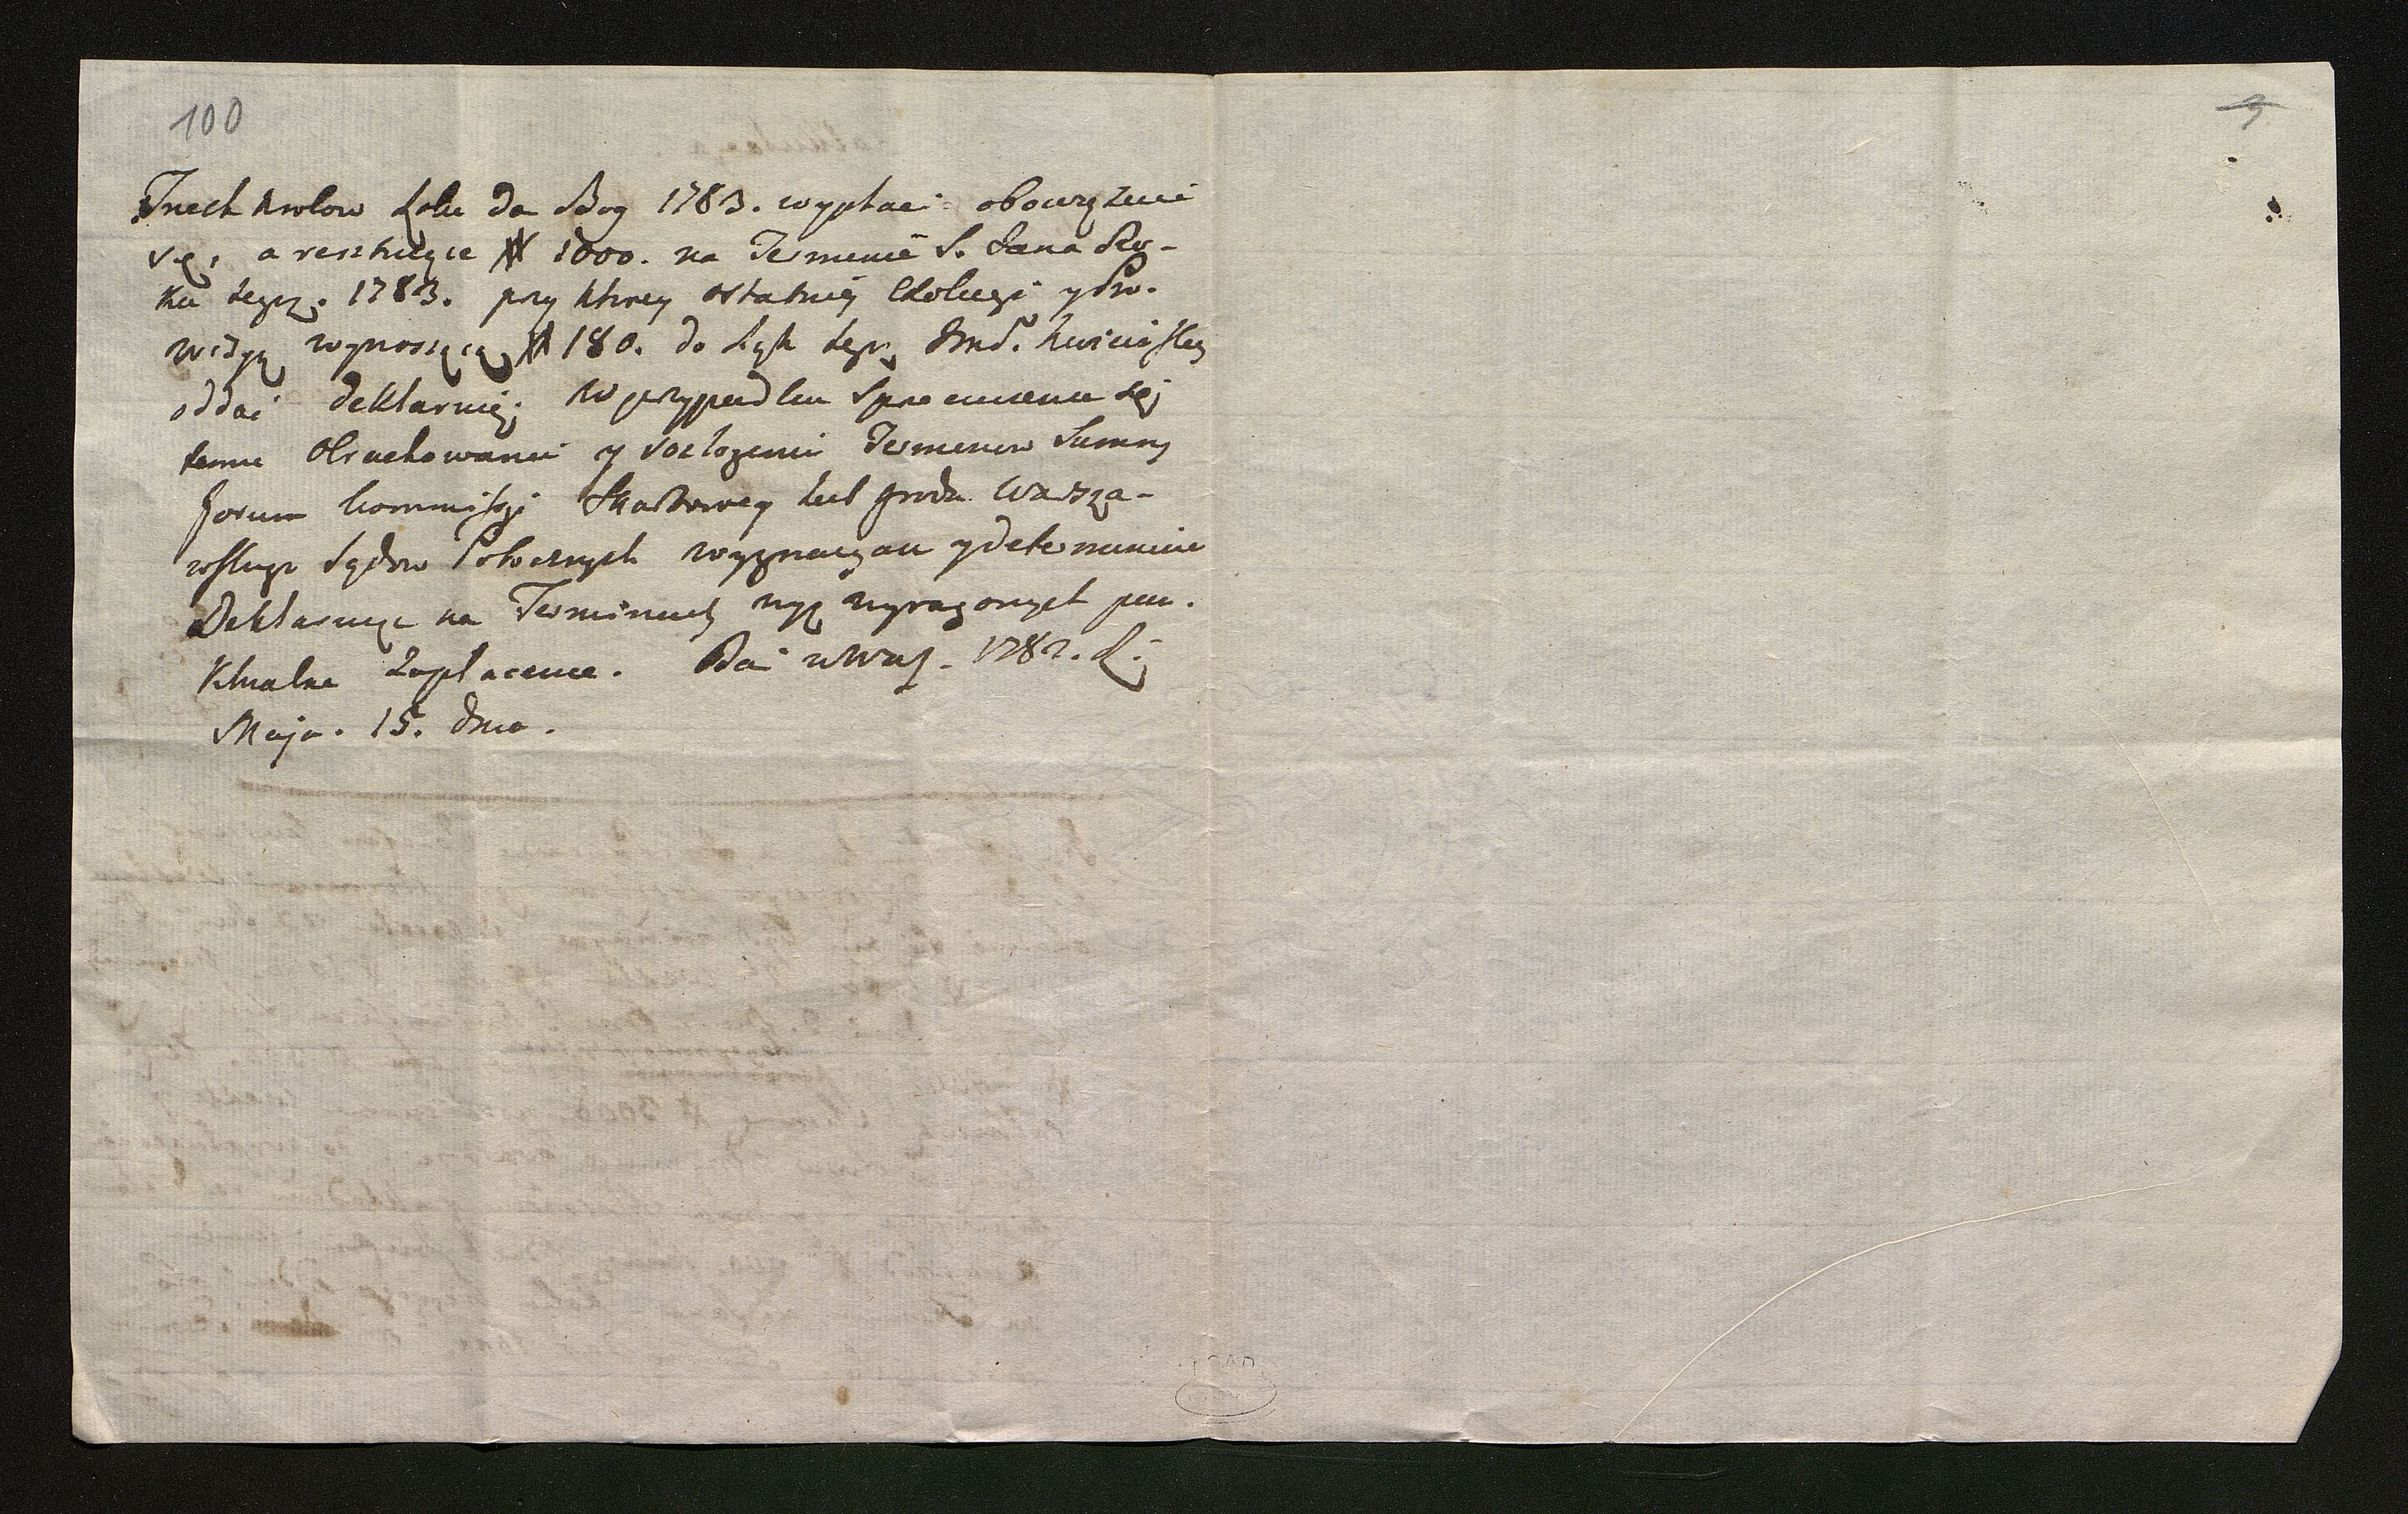 100
Trzech Krolow Roku da Bog 1783. wypłaci obowiązuie
się, a resztuiące # 1000. na Terminie S. Jana Ro-
ku tegoż. 1783. przy ktorey ostatniey Exolucyi y Pro-
wizyą wynoszącą # 180. do Rąk tegoż
oddać deklaruię; W przypadku Sprzeciwienia się
temu Obrachowaniu y rozłożeniu Terminow Summy
forum Kommissyi Skarbowey lub grodu Warsza-
wskiego Sądow Potocznych wyznaczam y determinuię
Deklaruiąc na Terminach wyż wyrażonych pun-
ktualne Zapłacenie. Dań w War. 1782. R:
Maja. 15. dnia.